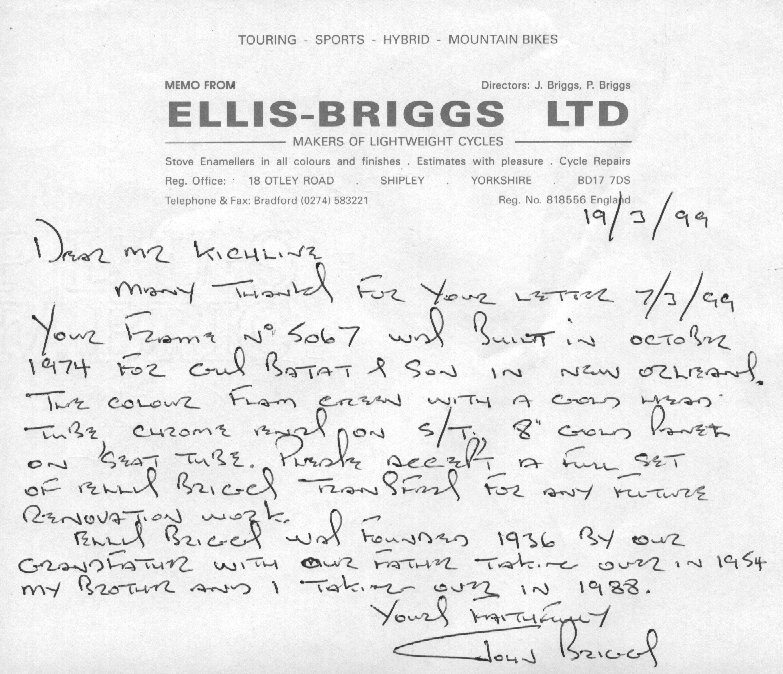 TOURING - SPORTS - HYBRID - MOUNTAIN BIKES
MEMO FROM Directors: J. Briggs, P. Briggs
ELLIS-BRIGGS LTD
MAKERS OF LIGHTWEIGHT CYCLES
Stove Enamellers in all colours and finishes . Estimates with pleasure . Cycle Repairs
Reg. Office: 18 OTLEY ROAD . SHIPLEY . YORKSHIRE . BD17 7DS
Telephone & Fax: Bradford (0274) 583221 Reg. No. 818556 England
19/3/99
DEAR MR KICHLINE
MANY THANKS FOR YOUR LETTER 7/3/99
YOUR FRAME Nº 5067 WAS BUILT IN OCTOBER
1974 FOR GUS BATAT & SON IN NEW ORLEANS.
THE COLOUR FLAM GREEN WITH A GOLD HEAD
TUBE, CHROME ENDS ON S/T, 8" GOLD PANEL
ON SEAT TUBE. PLEASE ACCEPT A FULL SET
OF ELLIS BRIGGS TRANSFERS FOR ANY FUTURE
RENOVATION WORK.
ELLIS BRIGGS WAS FOUNDED 1936 BY OUR
GRANDFATHER WITH OUR FATHER TAKING OVER IN 1954
MY BROTHER AND I TAKING OVER IN 1988.
YOURS FAITHFULLY
JOHN BRIGGS